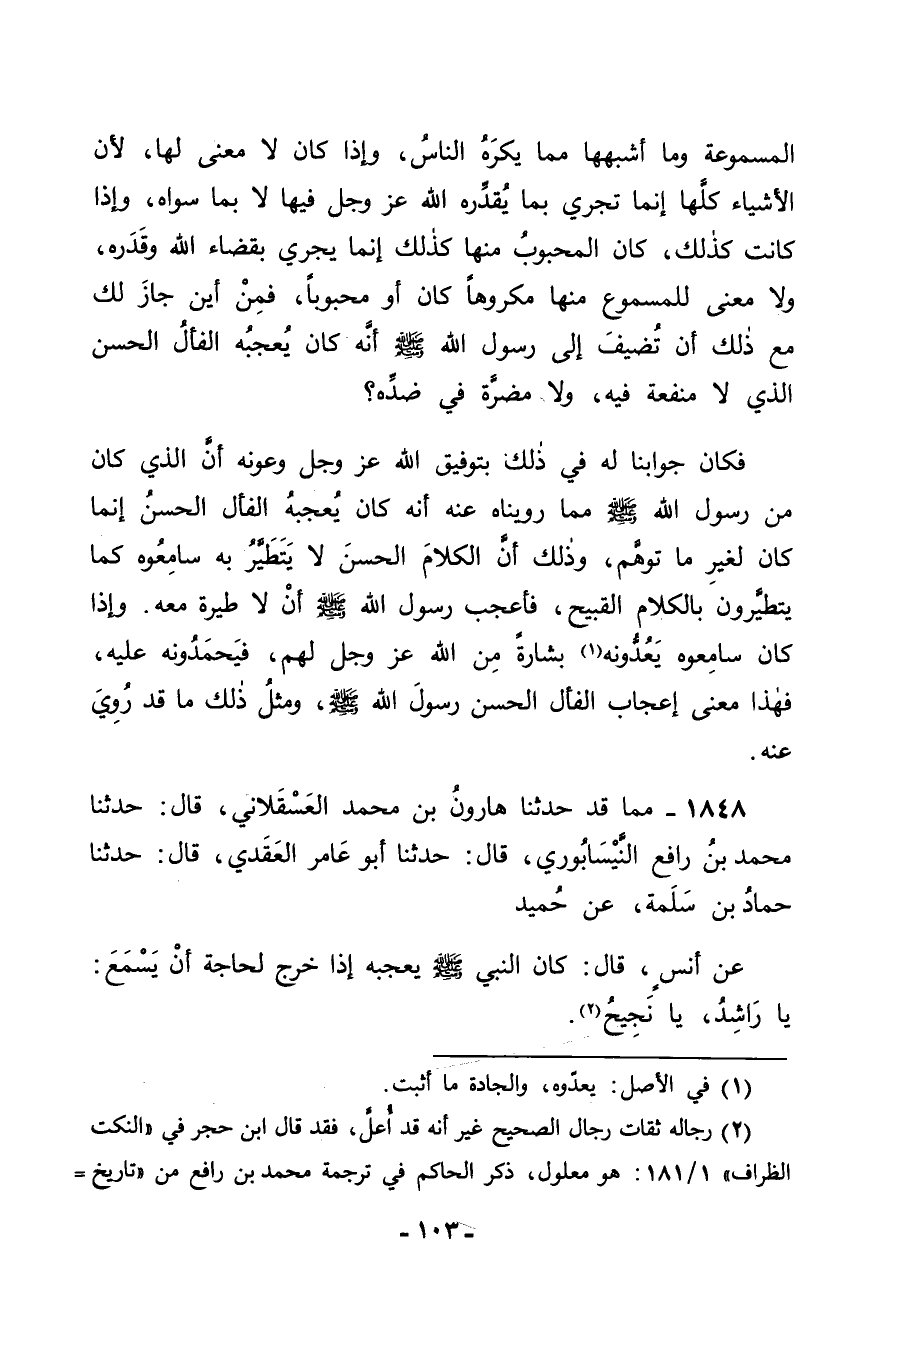 المسموعة وما أشبهها مما يكرَهُ الناسُ، وإذا كان لا معنى لها، لأن
الأشياء كلَّها إنما تجري بما يُقدِّره الله عز وجل فيها لا بما سواه، وإذا
كانت كذٰلك، كان المحبوبُ منها كذٰلك إنما يجري بقضاء الله وقَدَره،
ولا معنى للمسموع منها مكروهاً كان أو محبوباً، فمِنْ أين جازَ لك
مع ذٰلك أن تُضيفَ إلى رسول الله ﷺ أنَّه كان يُعجبُه الفألُ الحسن
الذي لا منفعة فيه، ولا مضرَّة في ضدِّه؟
فكان جوابنا له في ذٰلك بتوفيق الله عز وجل وعونه أنَّ الذي كان
من رسول الله ﷺ مما رويناه عنه أنه كان يُعجبهُ الفأل الحسنُ إنما
كان لغيرِ ما توهَّم، وذٰلك أنَّ الكلامَ الحسنَ لا يَتَطَيَّرُ به سامعُوه كما
يتطيَّرون بالكلام القبيح، فأعجب رسول الله ﷺ أنْ لا طيرة معه. وإذا
كان سامِعوه يَعُدُّونه(١) بشارةً مِن الله عز وجل لهم، فيَحمَدُونه عليه،
فهٰذا معنى إعجاب الفأل الحسن رسولَ الله ﷺ، ومثلُ ذٰلك ما قد رُوِيَ
عنه.
١٨٤٨ ـ مما قد حدثنا هارونُ بن محمد العَسْقَلاني، قال: حدثنا
محمد بنُ رافع النَّيْسَابُوري، قال: حدثنا أبو عَامر العَقَدي، قال: حدثنا
حمادُ بن سَلَمة، عن حُميد
عن أنسٍ، قال: كان النبي ﷺ يعجبه إذا خرج لحاجة أنْ يَسْمَعَ:
يا رَاشِدُ، يا نَجِيحُ(٢).
(١) في الأصل: يعدّوه، والجادة ما أثبت.
(٢) رجاله ثقات رجال الصحيح غير أنه قد أُعلَّ، فقد قال ابن حجر في «النكت
الظراف» ١/١٨١: هو معلول، ذكر الحاكم في ترجمة محمد بن رافع من «تاريخ =
ـ ١٠٣ ـ